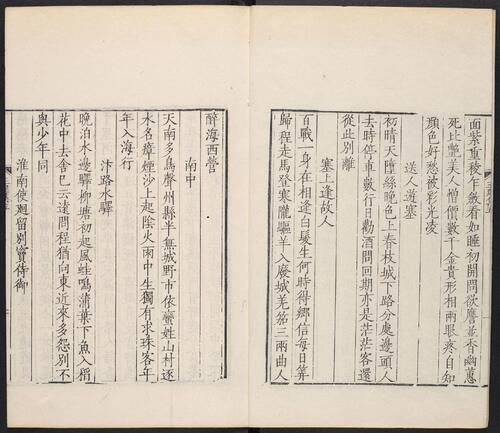 面紫重稜乍斂看如睡初開問欲應並香幽蕙
死比艷美人憎價數千金貴形相兩眼疼自知
顏色好愁被彩光凌
送人遊塞
初晴天墮絲晚色上春枝城下路分處邊頭人
去時停車數行日勸酒問回期亦是茫茫客還
從此別離
塞上逢故人
百戰一身在相逢白髮生何時得鄉信每日算
歸程走馬登寒隴驅羊入廢城羌笳三兩曲人
醉海西營
南中
天南多鳥聲州縣半無城野市依蠻姓山村逐
水名瘴煙沙上起陰火雨中生獨有求珠客年
年入海行
汴路水驛
晚泊水邊驛柳塘初起風蛙鳴蒲葉下魚入稻
花中去舍已云遠問程猶向東近來多怨別不
與少年同
淮南使迴留別竇侍御